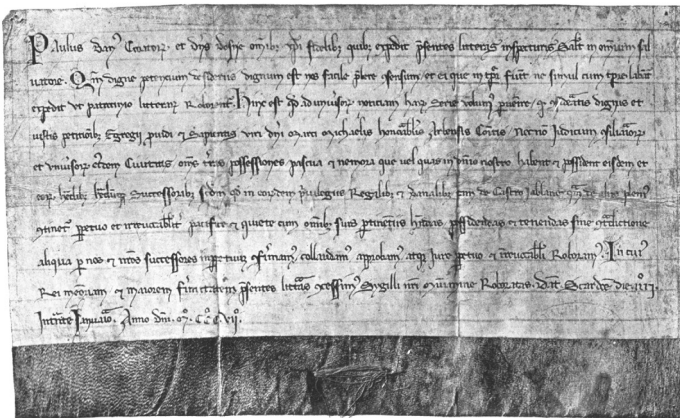 Paulus Ban⁹ Croatoꝝ et dn̄s Bosne om̄ibꝫ xp̄i fidelibꝫ quibꝫ expedit p̄sentes litteras inspecturis Salt̄ in omnium sal
uatore. Qm̄ digne petencium desideriis dignum est nos facile p̄bere ꝯsensum et ea que in tp̄re fiūt ne simul cum tp̄re labāt
expedit ut patrocinio litterarꝝ Roborent. Hinc est qd ad uniuersoꝝ noticiam harꝝ Serie uolum⁹ puenire qd dignis et
iustis petitionibꝫ Egregii puidi et Sapientis uiri dn̄i Marci Michaelis honorabil Comitis necnon Judicum ꝯsiliarioꝝ
et uniuersoꝝ Ciuitatis om̄es t̄ras possessiones pascua et nemora que uel quas in dn̄io nostro habent et possident eisdem et
eoꝝ hedibꝫ Successoribꝫ scdm qd in eoꝝdem priuilegiis Regalibꝫ et banalibꝫ de Castro Jablane plenius
ꝯtinet perpetuo et irreuocabilit pacifice et quiete cum om̄ibꝫ suis ptinentiis possidendas et tenendas sine ꝯtradictione
aliqua p nos et nr̄os successores inppetuum ꝯfirmam⁹ collaudam⁹ approbam⁹ atqꝫ Jure ppetuo et irreuocabili Roboram⁹. In cui⁹
Rei memoriam et maiorem firmitatem p̄sentes litteras ꝯcessim⁹ Sigilli nr̄i munimine Roboratas. Dat Scardone die
Intrante Januario. Anno dn̄i. M̊. CCC. VII̊.